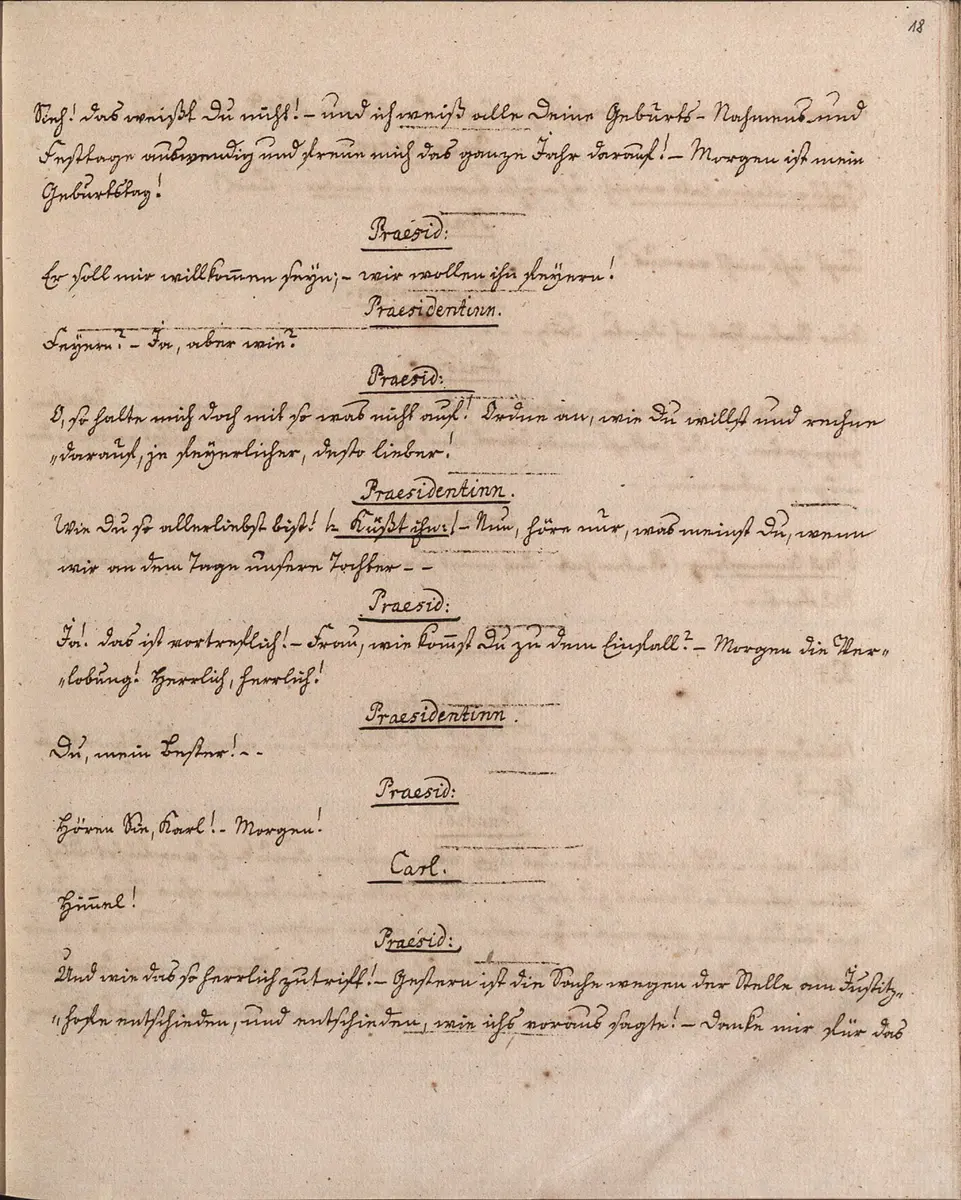 18
Sieh! das weißt Du nicht! – und ich weiß alle Deine Geburts- Nahmens und
Festtage auswendig und freue mich das ganze Jahr darauf! – Morgen ist mein
Geburtstag!
Praesid:
Er soll mir willkom̅en seyn; – wir wollen ihn feyern!
Praesidentinn.
Feyern? – Ja, aber wie?
Praesid:
O, so halte mich doch mit so was nicht auf! Ordne an, wie Du willst und rechne
„darauf, je feyerlicher, desto lieber!
Praesidentinn.
Wie Du so allerliebst bist! /: Küßt ihn :/ – Nun, höre nur, was meinst Du, wenn
wir an dem Tage unsere Tochter – –
Praesid:
Ja! das ist vortreflich! – Frau, wie kom̅st Du zu dem Einfall? – Morgen die Ver-
„lobung! Herrlich, herrlich!
Praesidentinn.
Du, mein Bester! – –
Praesid:
Hören Sie, Karl! – Morgen!
Carl.
Him̅el!
Praesid:
Und wie das so herrlich zutrifft! – Gestern ist die Sache wegen der Stelle am Justitz-
„hofe entschieden, und entschieden, wie ichs voraus sagte! – Danke mir für das